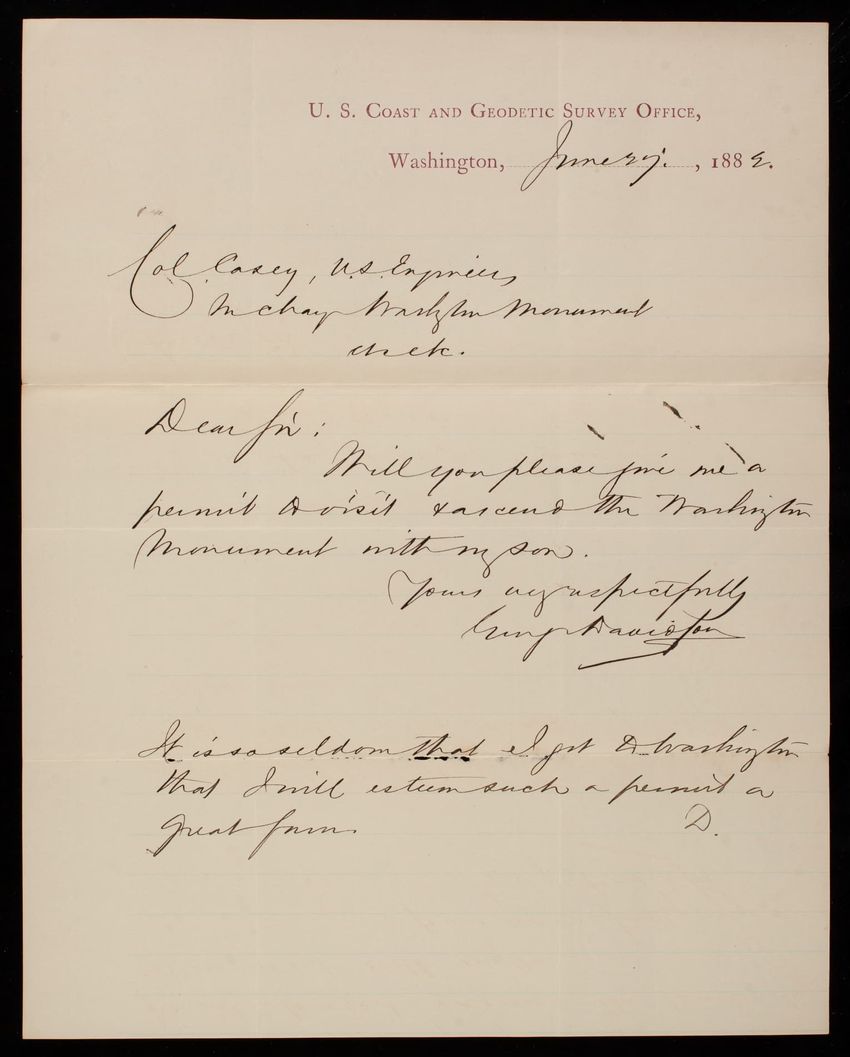 U. S. Coast and Geodetic Survey Office,
Washington, June 27., 1882.
Col. Casey, U.S. Engineers
In charge Washington Monument
etc etc.
Dear Sir:
Will you please give me a
permit to visit & ascend the Washington
Monument with my son.
Yours very respectfully
George Davidson
It is so seldom that I get to Washington
that I will esteem such a permit a
great favor.
D.